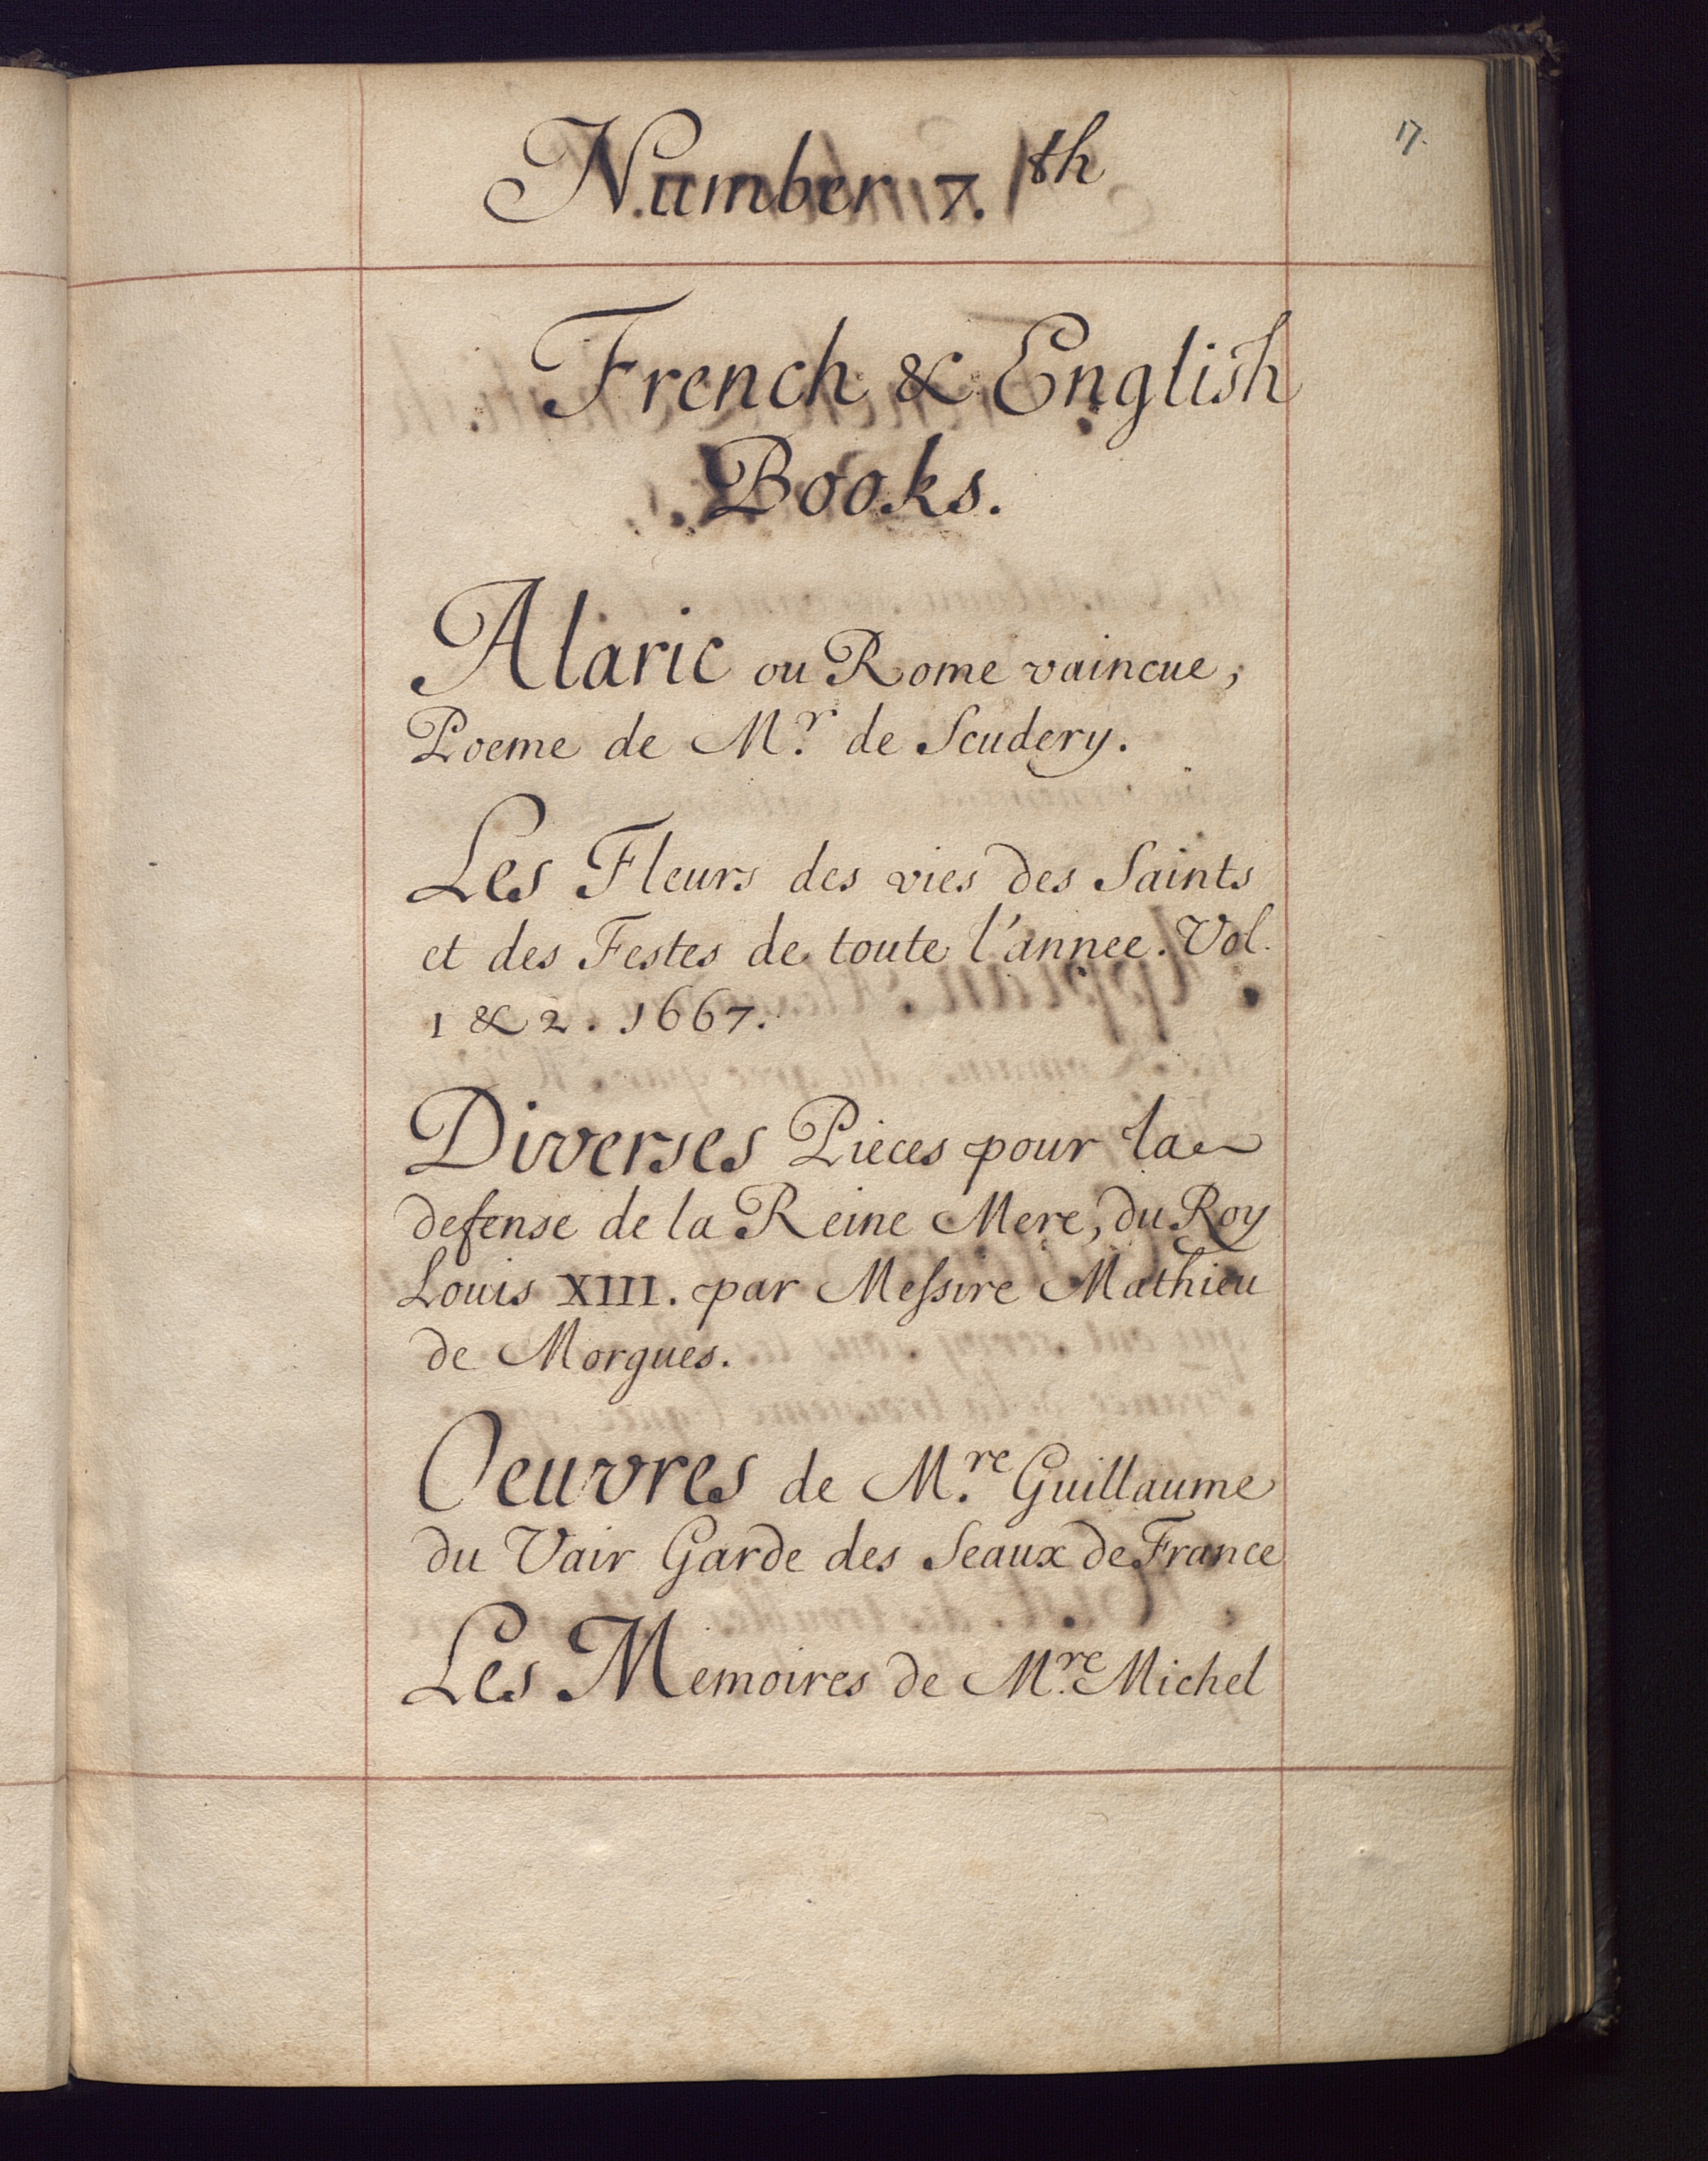 17.
Number 7.th
French & English
Books.
Alaric ou Rome vaincue,
Poeme de Mr. de Scudery.
Les Fleurs des vies des Saints
et des Festes de toute l'annee. Vol.
1 & 2. 1667.
Diverses Pieces pour la
defense de la Reine Mere, du Roy
Louis XIII. par Meſsire Mathieu
de Morgues.
Oeuvres de M.re Guillaume
du Vair Garde des Seaux de France
Les Memoires de M.re Michel